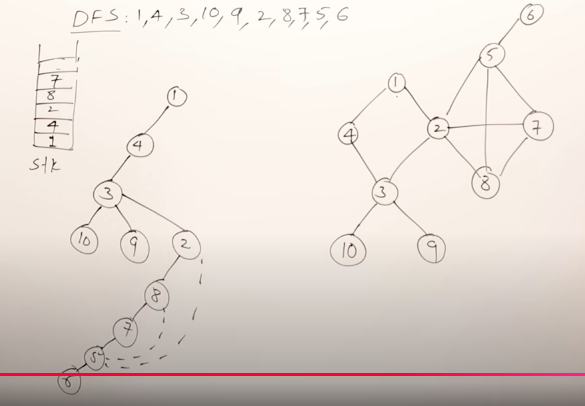 DFS: 1, 4, 3, 10, 9, 2, 8, 7, 5, 6
6
5
7
8
2
4
1
stk
1
4
3
10 9 2
8
7
5
6
1
4 2 7
3 8
10 9